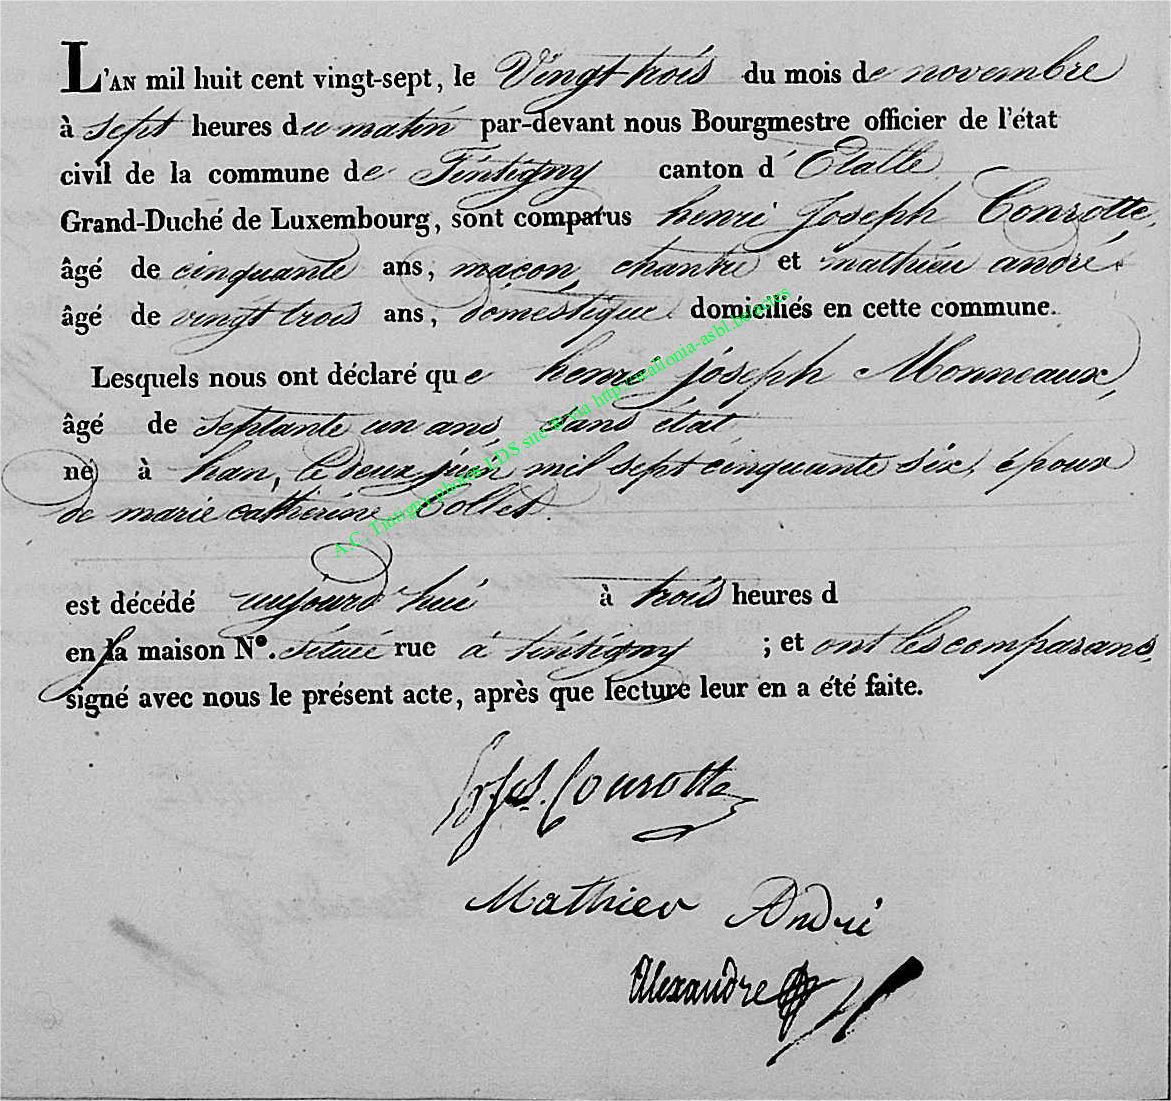 L'AN mil huit cent vingt-sept, le Vingt trois du mois de novembre
à sept heures du matin par-devant nous Bourgmestre officier de l'état
civil de la commune de Tintigny canton d' Etalle
Grand-Duché de Luxembourg, sont comparus henri Joseph Conrotte,
âgé de cinquante ans, maçon, chantre et mathieu andré
âgé de vingt trois ans, domestique domiciliés en cette commune.
Lesquels nous ont déclaré que henri joseph Monneaux,
âgé de septante un ans, sans état,
né à han, le deux juin mil sept cinquante six, époux
de marie catherine Collet.
est décédé aujourd hui à trois heures d
en sa maison N°. située rue à tintigny ; et ont les comparans
signé avec nous le présent acte, après que lecture leur en a été faite.
Conrotte
Mathieu André
Alexandre
A.C. Tintigny photos LDS site & via http://wallonia-asbl.be/actes